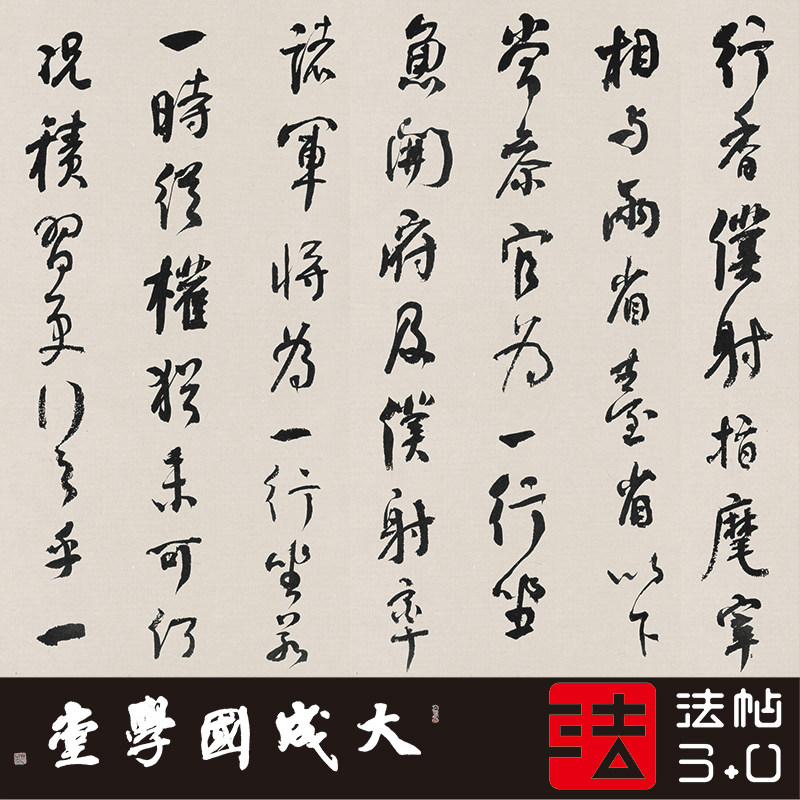 行香僕射指麾宰
相与兩省臺省以下
常參官為一行坐
魚開府及僕射率
諸軍將為一行坐若
一時從權猶未可何
況積習更行之乎一
大成國學堂
法
法帖
3.0